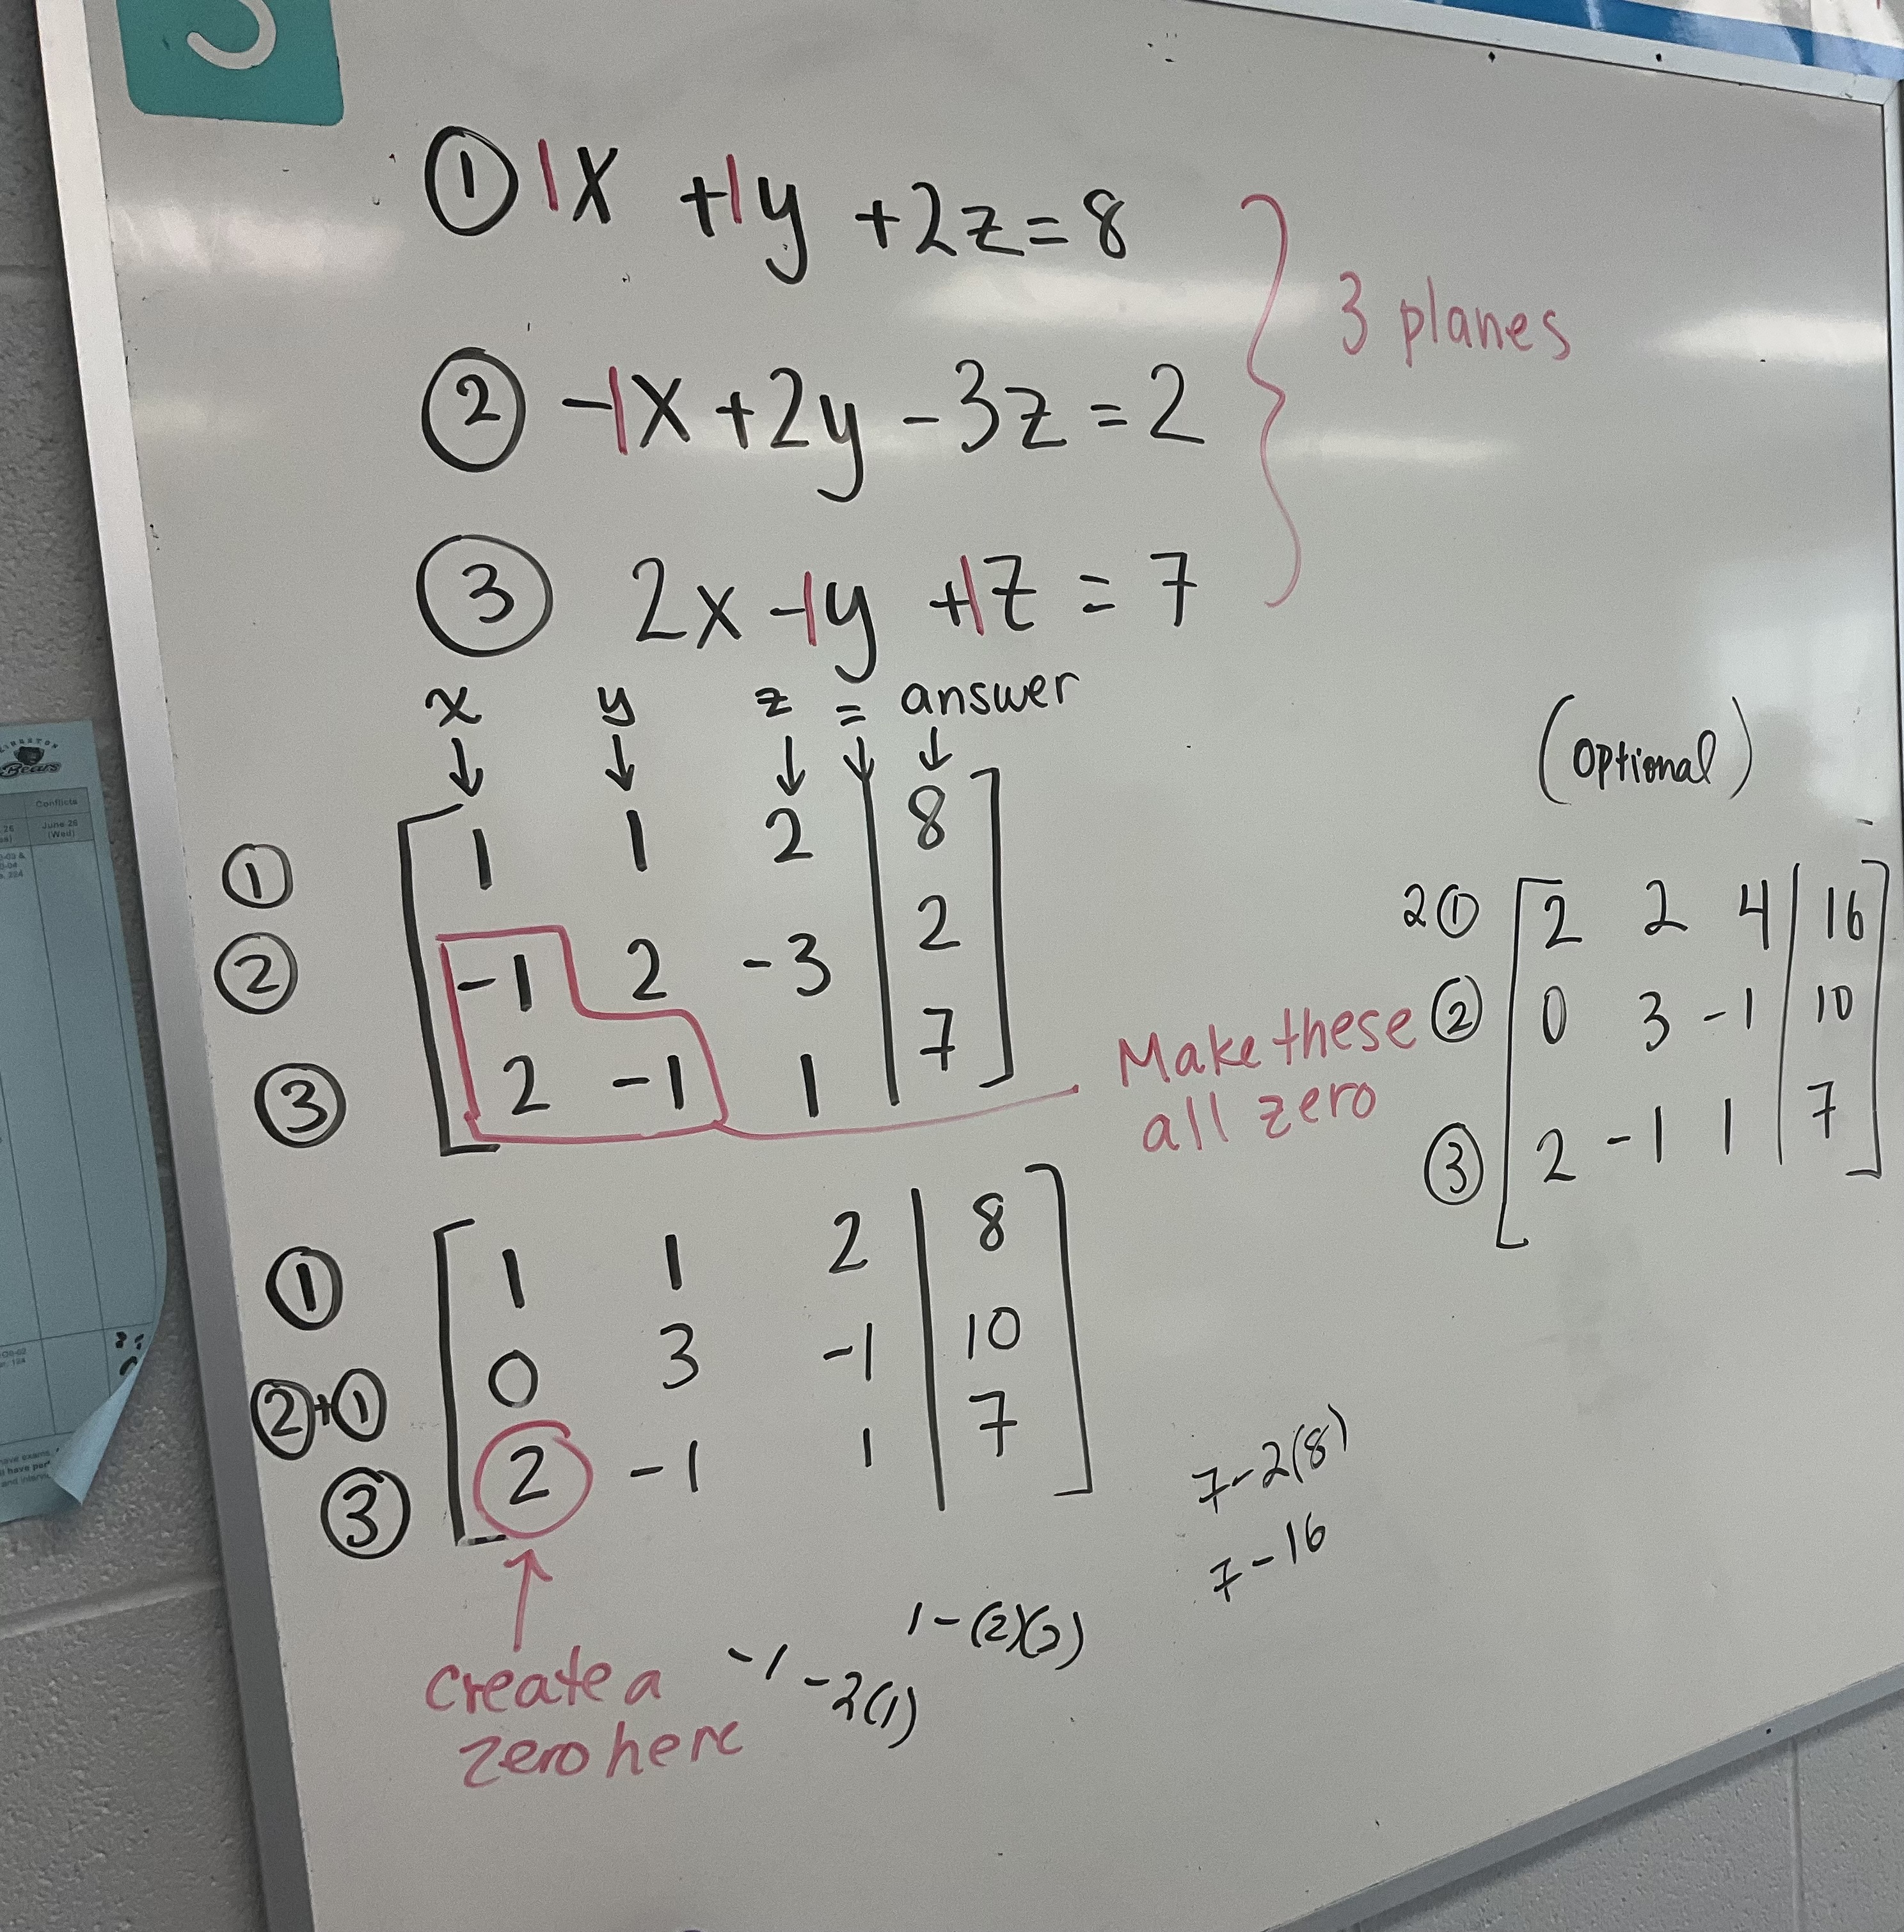 ① 1x + 1y + 2z = 8
② -1x + 2y - 3z = 2
③ 2x - 1y + 1z = 7
3 planes
x y z = answer
① 1 1 2 | 8
② -1 2 -3 | 2
③ 2 -1 1 | 7
Make these
all zero
(optional)
2① 2 2 4 | 16
② 0 3 -1 | 10
③ 2 -1 1 | 7
① 1 1 2 | 8
②+① 0 3 -1 | 10
③ 2 -1 1 | 7
create a
zero here
-1 -2(1)
1-(2)(2)
7-2(8)
7-16
Bears
Conflicts
June 26
(Wed)